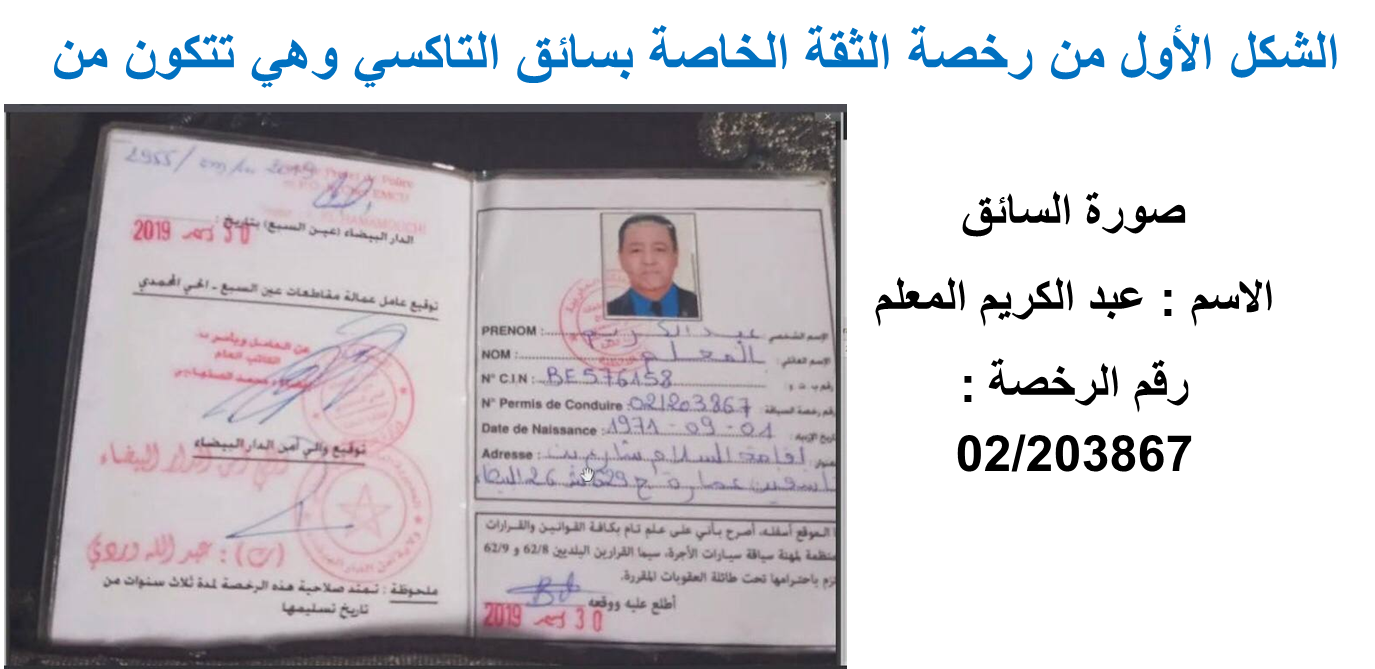 الشكل الأول من رخصة الثقة الخاصة بسائق التاكسي وهي تتكون من
صورة السائق
الاسم : عبد الكريم المعلم
رقم الرخصة :
02/203867
2955/
الدار البيضاء (عين السبع) بتاريخ :
30 دجنبر 2019
توقيع عامل عمالة مقاطعات عين السبع ـ الحي المحمدي
عن العامل وبأمر منه
الكاتب العام
توقيع والي أمن الدار البيضاء
والي أمن الدار البيضاء
عبد الله وردي
ملحوظة : تمتد صلاحية هذه الرخصة لمدة ثلاث سنوات من
تاريخ تسليمها
PRENOM : عبد الكريم الإسم الشخصي
NOM : المعلم الإسم العائلي
N° C.I.N : BE576158 رقم ب. ت. و :
N° Permis de Conduire : 021203867 رقم رخصة السياقة :
Date de Naissance : 1971 - 09 - 01 تاريخ الإزدياد :
Adresse : اقامة السلام
عمارة ج 629 26 البيضاء
الموقع أسفله، أصرح بأني على علم تام بكافة القوانين والقرارات
المنظمة لمهنة سياقة سيارات الأجرة، سيما القرارين البلديين 62/8 و 62/9
باحترامها تحت طائلة العقوبات المقررة.
أطلع عليه ووقعه
30 دجنبر 2019